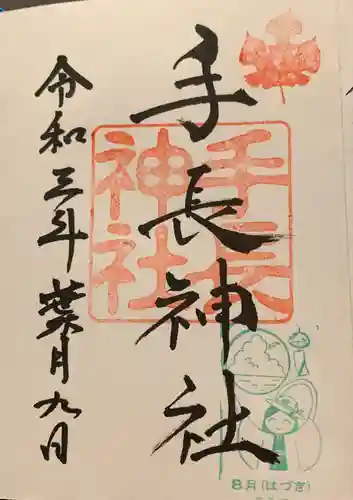 手長神社
令和三年葉月九日
手長神社
8月(はづき)